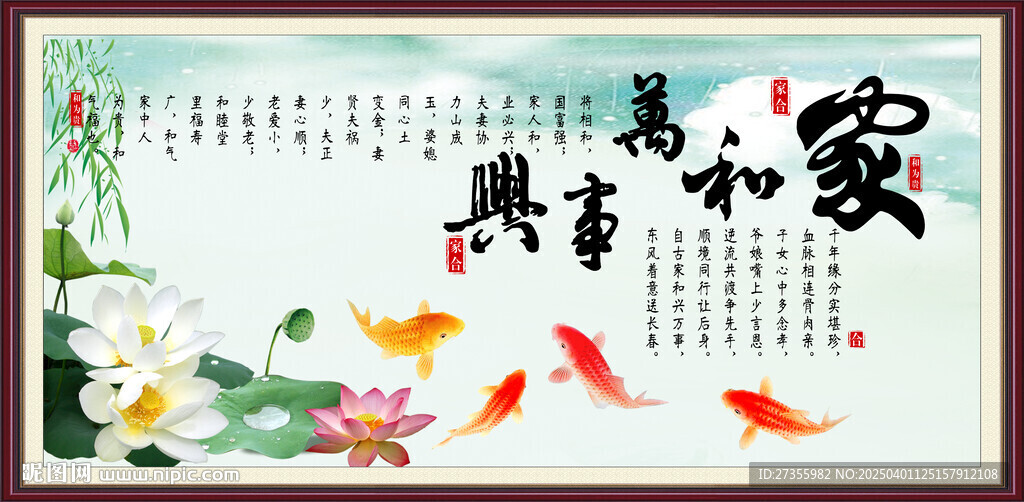 家和萬事興
家合
和为贵
家合
将相和，
国富强；
家人和，
业必兴；
夫妻协
力山成
玉，婆媳
同心土
变金；妻
贤夫祸
少，夫正
妻心顺；
老爱小，
少敬老；
和睦堂
里福寿
广，和气
家中人
为贵，和
气福也。
和为贵
千年缘分实堪珍，
血脉相连骨肉亲。
子女心中多念孝，
爷娘嘴上少言恩。
逆流共渡争先手，
顺境同行让后身。
自古家和兴万事，
东风着意送长春。
合
昵图网 www.nipic.com
ID:27355982 NO:20250401125157912108